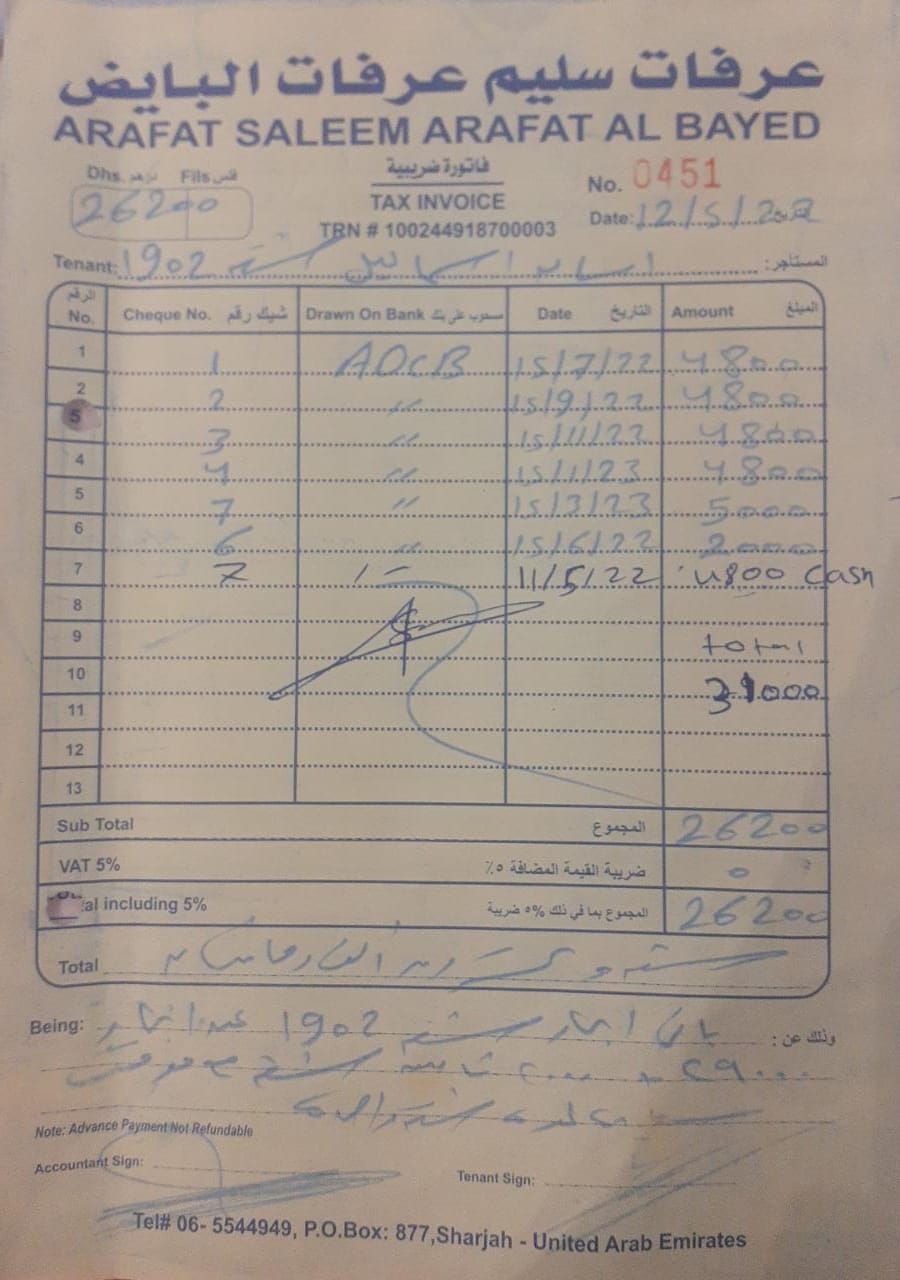 عرفات سليم عرفات البايض
ARAFAT SALEEM ARAFAT AL BAYED
Dhs. درهم Fils فلس
26200
فاتورة ضريبية
TAX INVOICE
TRN # 100244918700003
No. 0451
Date: 12/5/202
Tenant: 1902 المستاجر:
الرقم No. Cheque No. شيك رقم Drawn On Bank مسحوب على بنك Date التاريخ Amount المبلغ
1 1 ADCB 15/7/22 4800
2 2 〃 15/9/22 4800
3 〃 15/11/22 4800
4 4 〃 15/1/23 4800
5 7 〃 15/3/23 5000
6 6 〃 15/6/22 2000
7 7 1 - 11/5/22 4800 Cash
8
9 total
10 31000
11
12
13
Sub Total المجموع 26200
VAT 5% ضريبة القيمة المضافة ٥٪ 0
al including 5% المجموع بما في ذلك ٥% ضريبة 26200
Total
Being: 1902 وذلك عن:
٢٩٠٠٠
Note: Advance Payment Not Refundable
Accountant Sign:
Tenant Sign:
Tel# 06- 5544949, P.O.Box: 877,Sharjah - United Arab Emirates